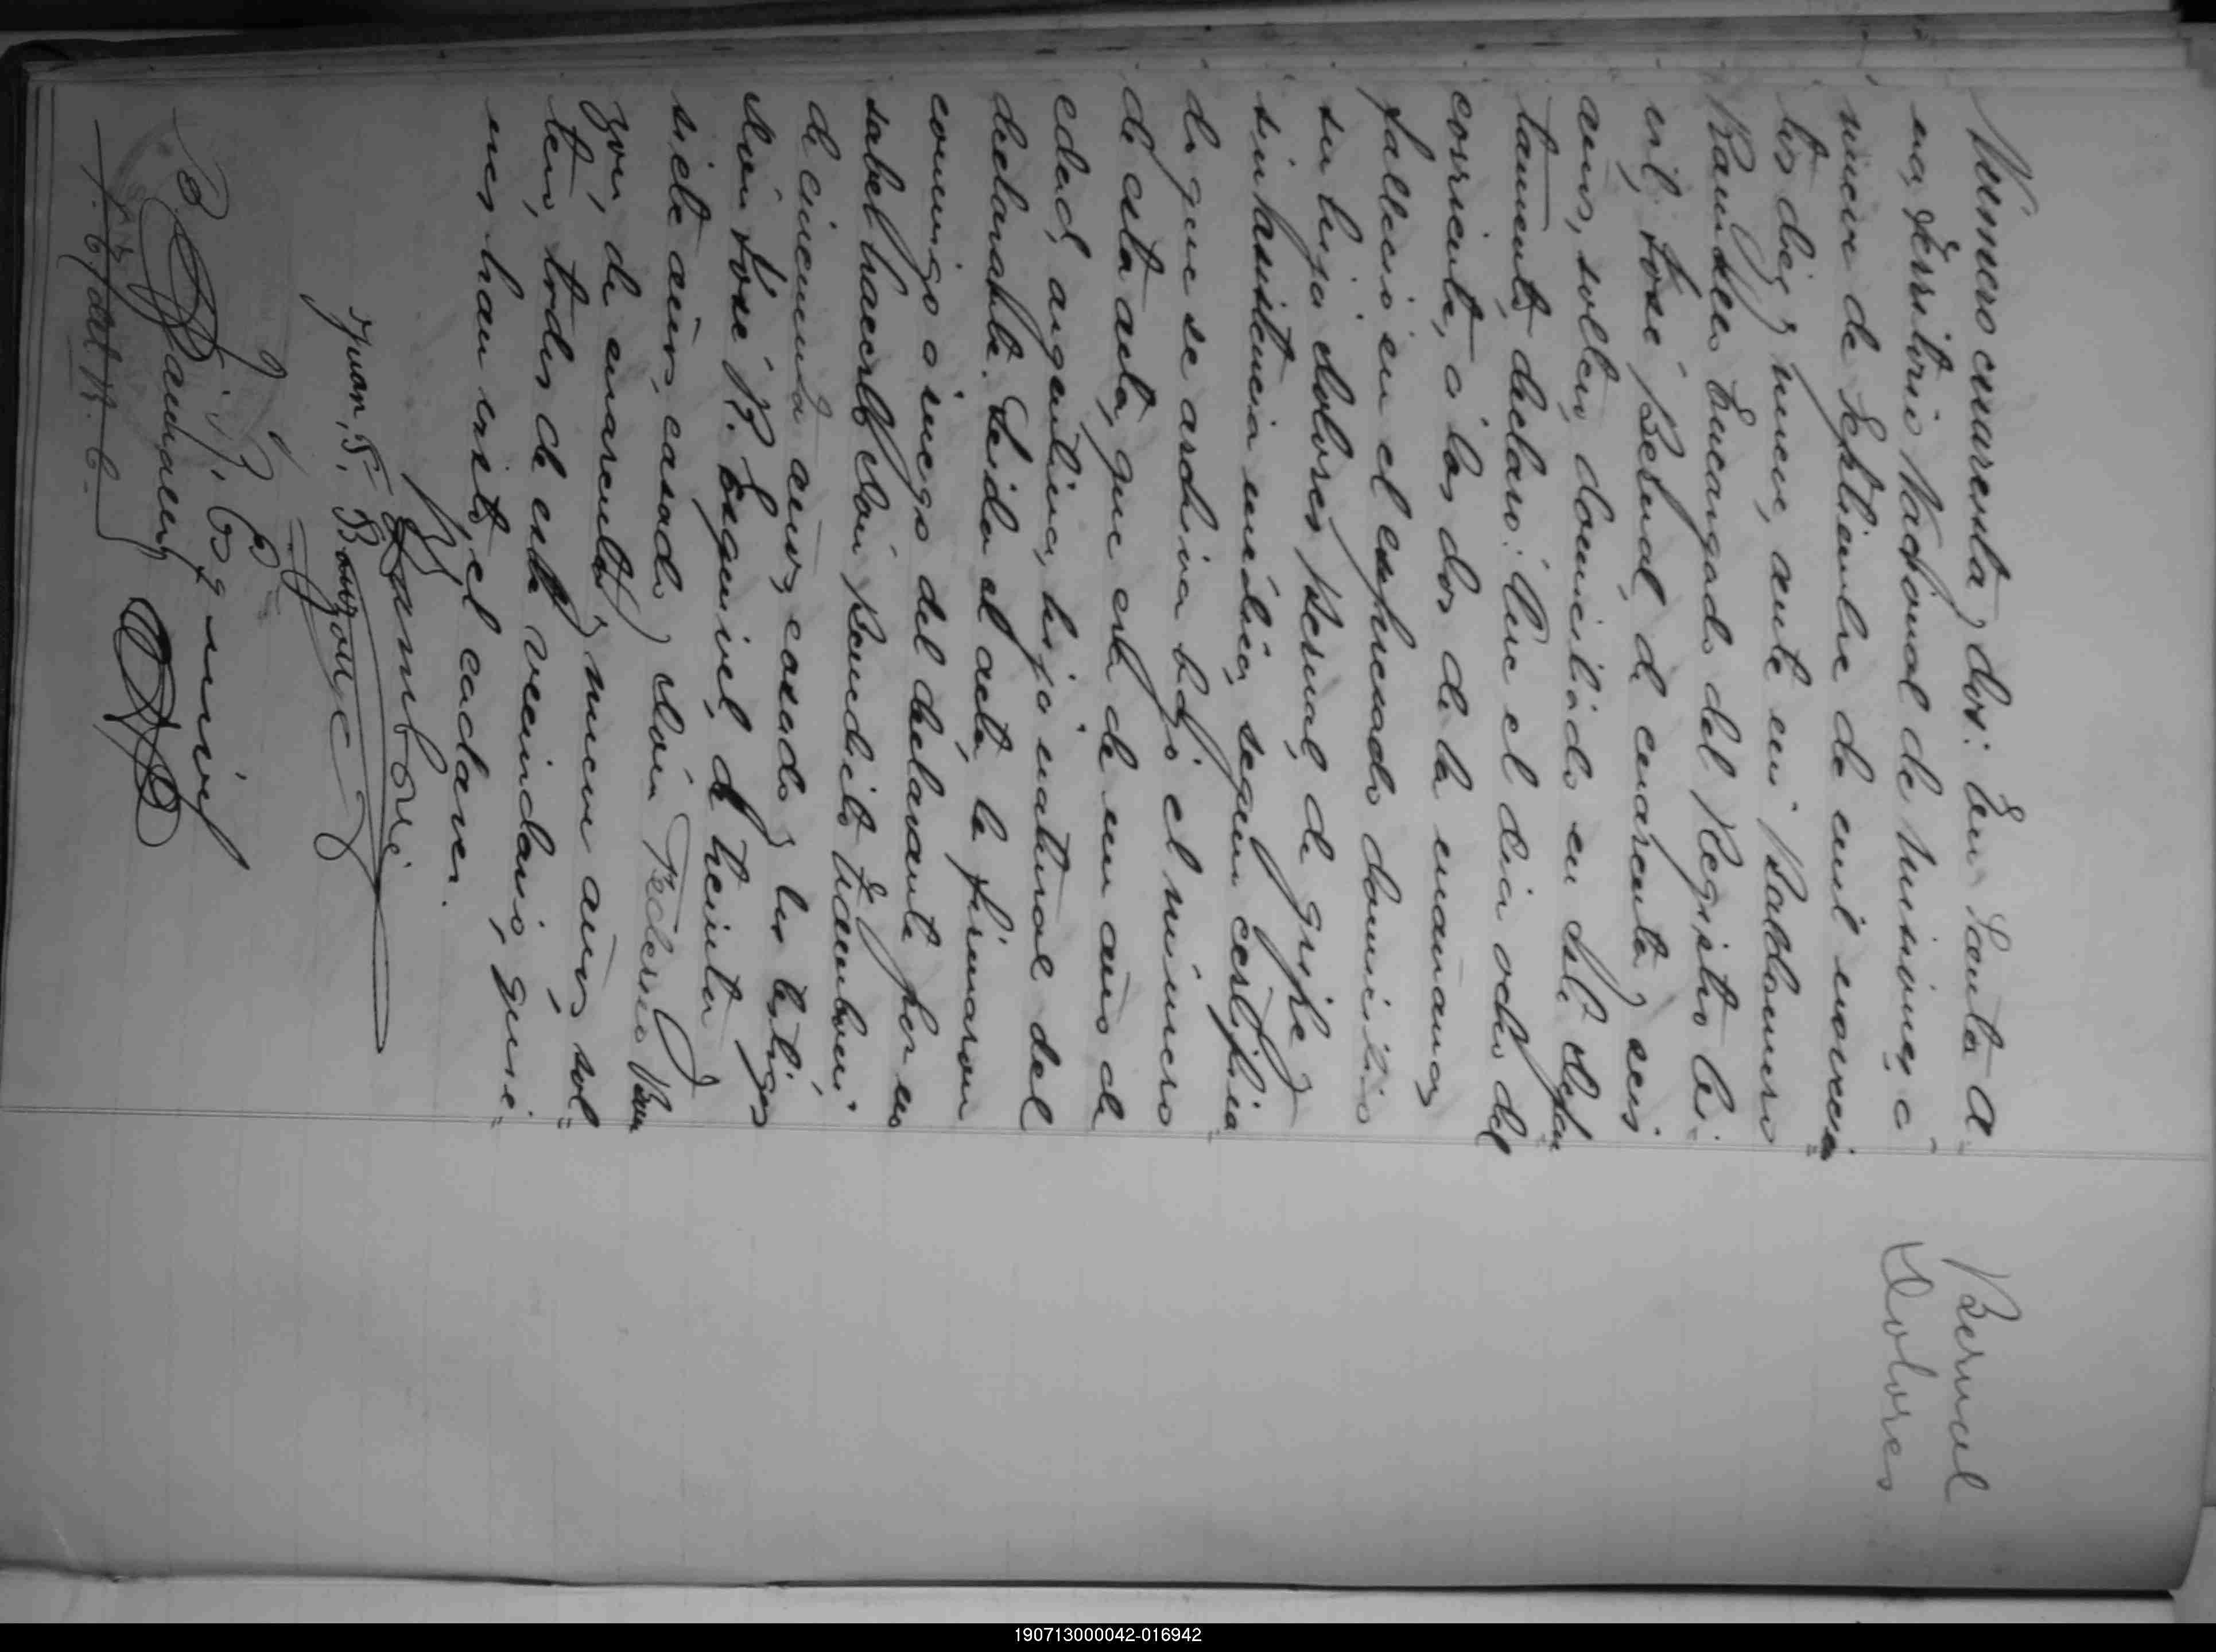 Bernal
Dolores
Numero cuarenta y dos: En Santa A
na, Territorio Nacional de Misiones, á
nueve de Septiembre de mil novecien
tos diez y nueve, ante mi Baldomero
encargado del Registro Ci
vil, José Bernal, de cuarenta y seis
años, soltero, domiciliado en este
tamento, declaró: Que el dia ocho del
corriente, á las dos de la mañana
falleció en el expresado domicilio
su hija Dolores Bernal, de gripe y
sin asistencia médica, segun certifica
do que se archiva bajo el número
de esta acta, que era de un año de
edad, argentina, hija natural del
declarante. Leida el acta, la firmaron
conmigo a ruego del declarante por no
saber hacerlo Don Benedicto
de cincuenta años, casado y los testigos
Don José R. Esquivel, de treinta y
siete años, casado, y Don Federico Bau
zon, de cuarenta y nueve años, sol
tero, todos de este vecindario, quie
nes han visto el cadaver.
J. R. Esquivel